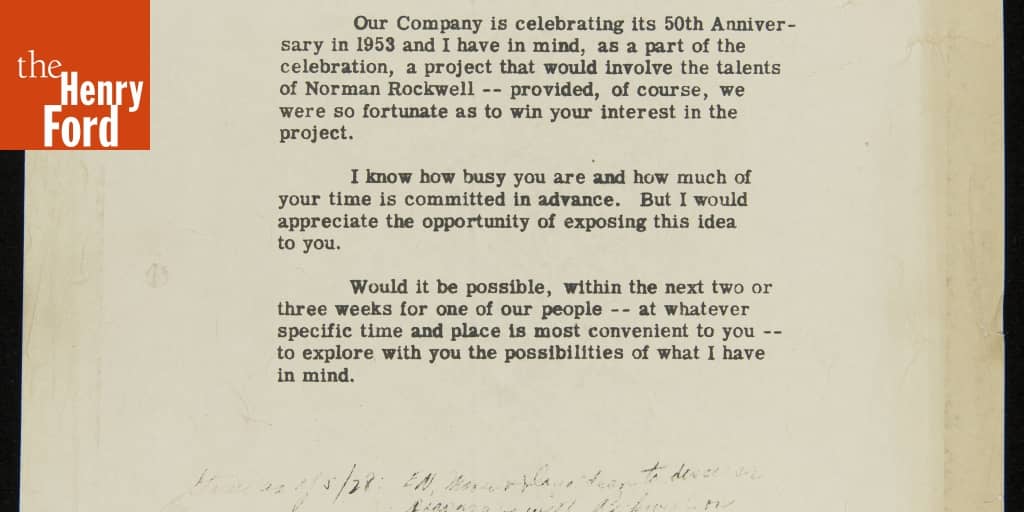 the
Henry
Ford
Our Company is celebrating its 50th Anniver-
sary in 1953 and I have in mind, as a part of the
celebration, a project that would involve the talents
of Norman Rockwell -- provided, of course, we
were so fortunate as to win your interest in the
project.
I know how busy you are and how much of
your time is committed in advance. But I would
appreciate the opportunity of exposing this idea
to you.
Would it be possible, within the next two or
three weeks for one of our people -- at whatever
specific time and place is most convenient to you --
to explore with you the possibilities of what I have
in mind.
as of 5/28: to